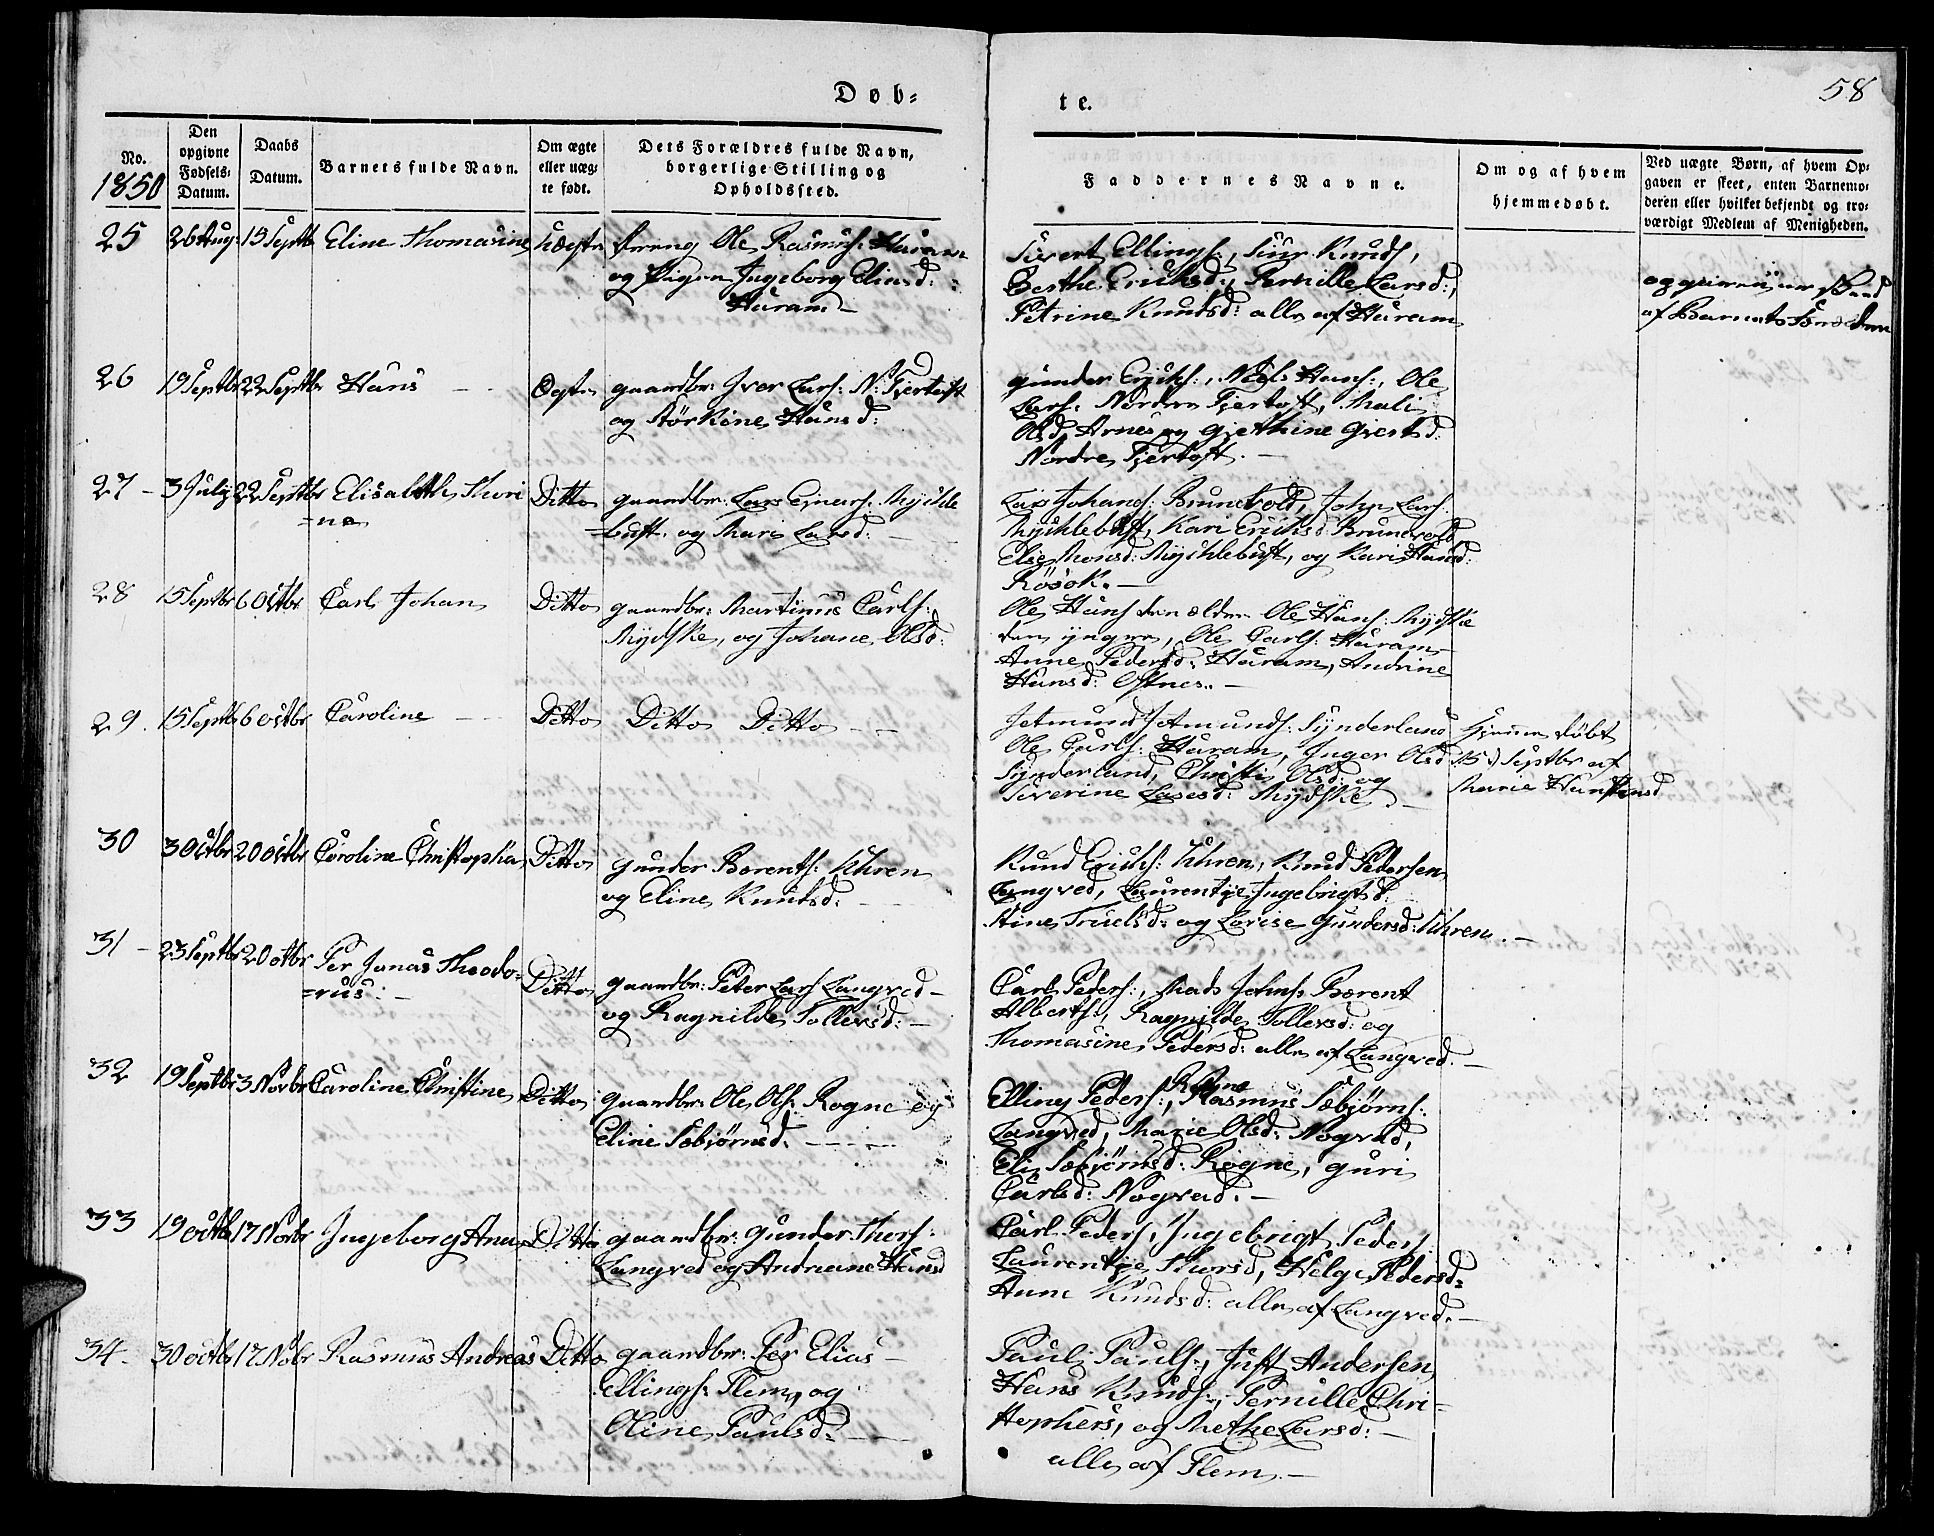 Døb-
te.
58
No.
1850
Den
opgivne
Fødsels-
Datum.
Daabs
Datum.
Barnets fulde Navn.
Om ægte
eller uæg-
te født.
Dets Forældres fulde Navn,
borgerlige Stilling og
Opholdssted.
Faddernes Navne.
Om og af hvem
hjemmedøbt.
Ved uægte Børn, af hvem Op-
gaven er skeet, enten Barnemo-
deren eller hvilket bekjendt og tro-
værdigt Medlem af Menigheden.
25 26 Aug: 15 Septbr Eline Thomasine Uægte Dreng Ole Rasmus: Haram
og Pigen Ingeborg Eliasd:
Haram —
Sivert Ellings:, Siur Knuds,
Berthe Ericksd:, Pernille Larsd:,
Petrine Knutsd: alle af Haram
af Barnets Forældre
26 19 Septbr 22 Septbr Hans — Ægte gaardbr: Iver Lars: N: Fjertoft
og Størkine Hansd:
Gunder Ericks:, Niels Hans:, Ole
Lars: Nordre Fjertoft, Mali
Olsd Arnes og Gjethine Giertsd:
Nordre Fjertoft. —
27 - 3 July 22 Septbr Elisabeth Thori
=ne
Ditto gaardbr: Lars Einars: Myckle
-bust. og Mari Larsd: —
Lars Johans: Brunvold, John Lars:
Mycklebust, Kari Ericksd: Brunvold
Else Monsd: Mycklebust, og Kari Hansd:
Røsok. —
28 15 Septbr 6 Octbr Carl Johan Ditto gaardbr: Martinus Carls:
Mydske, og Johane Olsd:
Ole Hans den ældre Ole Hans: Mydske
den yngre, Ole Carls: Haram
Anne Pedersd: Haram, Andrine
Hansd: Ostnes. —
29. 15 Septbr 6 Octbr Caroline — Ditto Ditto Ditto — —
Jetmund Jetmunds: Synderland
Ole Carls: Haram, Inger Olsd
Synderland, Christi Olsd: og
Severine Lasesd: Mydske. —
Hjemme døbt
15 Septbr af
Marie Hanstensd
30 3 Octbr 20 Octbr Caroline Christophia Ditto Gunder Berents: Uhren
og Eline Knutsd: —
Knud Ericks: Uhren, Knud Pedersen
Langved, Laurentje Ingebrigtsd:
Stine Truelsd: og Lovise Gundersd: Uhren. —
31 - 23 Septbr 20 Octbr Per Jonas Theodo-
=rus: —
Ditto gaardbr: Peter Lars Langved —
og Ragnilde Tollevsd: —
Carl Peders:, Mads Johns: Berent
Alberts:, Ragnilde Tollevsd: og
Thomasine Pedersd: alle af Langved. —
32 19 Septbr 3 Novbr Caroline Christine Ditto gaardbr: Ole Ols: Rogne og
Eline Sæbjørnsd. — — —
Rogne
Elling Peders:, Rasmus Sæbjørns:
Langved, Marie Olsd: Nogved,
Eli Sæbjørnsd: Rogne, Guri
Carlsd: Nogved. —
33 19 Octbr 17 Novbr Ingeborg Ana Ditto gaardbr: Gunder Thors:
Langved og Andreane Hansd
Carl Peders, Ingebrigt Peders
Laurentje Thorsd, Helge Pedersd:
Hane Knudsd: alle af Langved. —
34. 30 Octbr 17 Nobr Rasmus Andreas Ditto gaardbr: Per Elias —
Ellings: Flem, og
Oline Paulsd: —
Paul Pauls:, Just Andersen
Hans Knuds:, Pernille Chri=
stophers, og Methe Larsd: —
alle af Flem. —